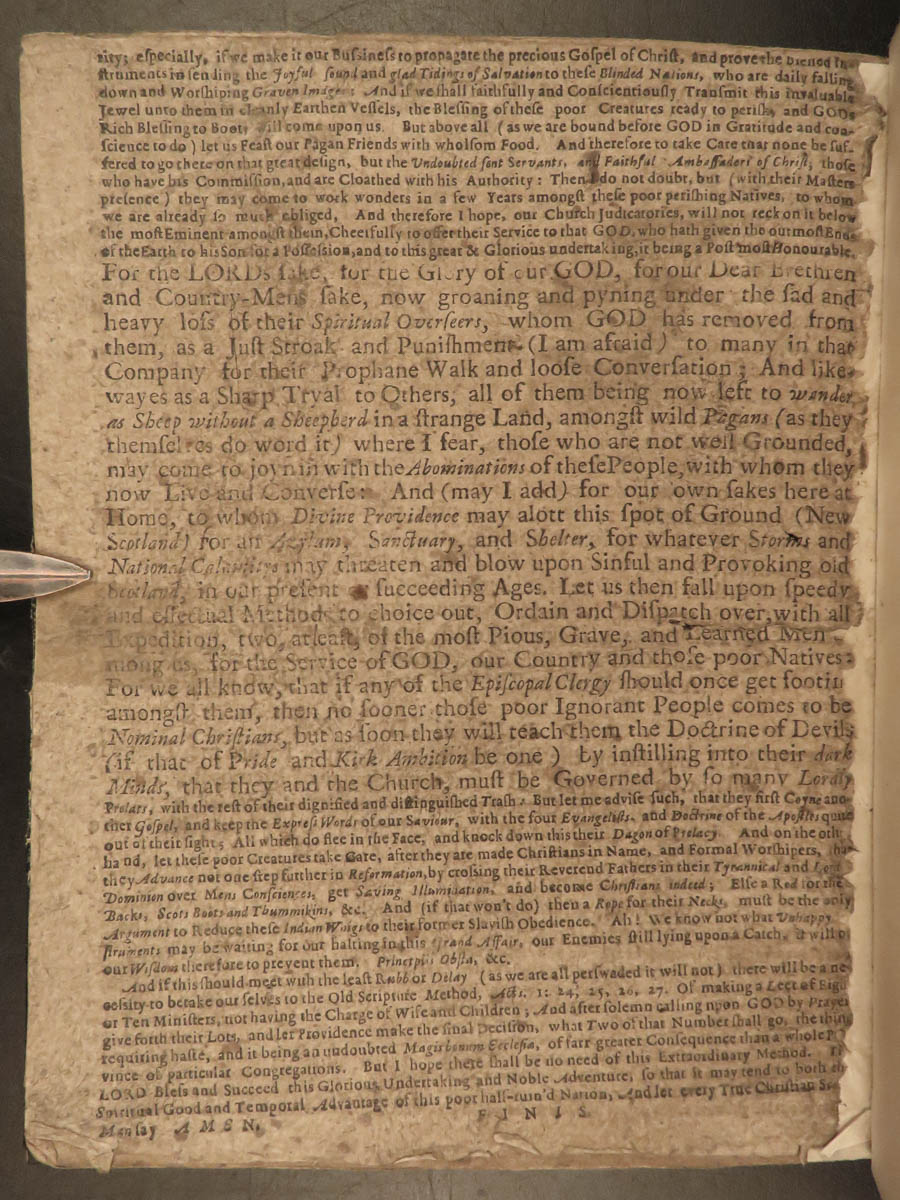 rity; eſpecially, if we make it our Buſſineſs to propagate the precious Goſpel of Chriſt, and prove the Bleſſed In-
ſtruments in ſending the Joyful ſound and glad Tidings of Salvation to theſe Blinded Nations, who are daily falling
down and Worſhiping Graven Images: And if we ſhall faithfully and Conſcientiouſly Tranſmit this invaluable
Jewel unto them in cleanly Earthen Veſſels, the Bleſſing of theſe poor Creatures ready to periſh, and GODs
Rich Bleſſing to Boot, will come upon us. But above all (as we are bound before GOD in Gratitude and con-
ſcience to do) let us Feaſt our Pagan Friends with wholſom Food. And therefore to take Care that none be ſuf-
fered to go there on that great deſign, but the Undoubted ſent Servants, and Faithful Ambaſſadors of Chriſt, thoſe
who have his Commiſſion, and are Cloathed with his Authority: Then I do not doubt, but (with their Maſters
preſence) they may come to work wonders in a few Years amongſt theſe poor periſhing Natives, to whom
we are already ſo much obliged, And therefore I hope, our Church Judicatories, will not reckon it below
the moſt Eminent amongſt them, Cheerfully to offer their Service to that GOD, who hath given the outmoſt Ends
of the Earth to his Son for a Poſſeſſion, and to this great & Glorious undertaking, it being a Poſt moſt Honourable.
For the LORDs ſake, for the Glory of our GOD, for our Dear Brethren
and Country-Mens ſake, now groaning and pyning under the ſad and
heavy loſs of their Spiritual Overſeers, whom GOD has removed from
them, as a Juſt Stroak and Puniſhment (I am afraid) to many in that
Company for their Prophane Walk and looſe Converſation; And like-
wayes as a Sharp Tryal to Others, all of them being now left to wander
as Sheep without a Sheepherd in a ſtrange Land, amongſt wild Pagans (as they
themſelves do word it) where I fear, thoſe who are not well Grounded,
may come to joyn in with the Abominations of theſe People, with whom they
now Live and Converſe: And (may I add) for our own ſakes here at
Home, to whom Divine Providence may alott this ſpot of Ground (New
Scotland) for an Azylum, Sanctuary, and Shelter, for whatever Storms and
National Calamitys may threaten and blow upon Sinful and Provoking old
Scotland, in our preſent or ſucceeding Ages. Let us then fall upon ſpeedy
and effectual Methods to choice out, Ordain and Diſpatch over, with all
Expedition, two, atleaſt, of the moſt Pious, Grave, and Learned Men
among us, for the Service of GOD, our Country and thoſe poor Natives:
For we all know, that if any of the Epiſcopal Clergy ſhould once get footin
amongſt them, then no ſooner thoſe poor Ignorant People comes to be
Nominal Chriſtians, but as ſoon they will teach them the Doctrine of Devils
(if that of Pride and Kirk Ambition be one) by inſtilling into their dark
Minds, that they and the Church, muſt be Governed by ſo many Lordly
Prelats, with the reſt of their dignified and diſtinguiſhed Traſh. But let me adviſe ſuch, that they firſt Coyne ano-
ther Goſpel, and keep the Expreſs Words of our Saviour, with the four Evangeliſts, and Doctrine of the Apoſtles quite
out of their ſight; All which do flee in the Face, and knock down this their Dagon of Prelacy. And on the oth
hand, let theſe poor Creatures take Care, after they are made Chriſtians in Name, and Formal Worſhipers, tha
they Advance not one ſtep further in Reformation, by croſſing their Reverend Fathers in their Tyrannical and Lord
Dominion over Mens Conſciences, get Saving Illumination, and become Chriſtians indeed; Elſe a Rod for the
Backs, Scots Boots and Thummikins, &c. And (if that won't do) then a Rope for their Necks, muſt be the only
Argument to Reduce theſe Indian Whigs to their former Slaviſh Obedience. Ah! We know not what Unhappy
ſtruments may be waiting for our halting in this Grand Affair, our Enemies ſtill lying upon a Catch, it will
our Wiſdom therefore to prevent them. Principiis Obſta, &c.
And if this ſhould meet with the leaſt Rubb or Delay (as we are all perſwaded it will not) there will be a ne
ceſsity to betake our ſelves to the Old Scripture Method, Acts. 1: 24, 25, 26, 27. Of making a Leet of Eigh
or Ten Miniſters, not having the Charge of Wife and Children; And after ſolemn calling upon GOD by Prayer
give forth their Lots, and let Providence make the final Deciſion, what Two of that Number ſhall go, the thing
requiring haſte, and it being an undoubted Magis bonum Eccleſiæ, of farr greater Conſequence than a whole P
vince of particular Congregations. But I hope there ſhall be no need of this Extraordinary Method. T
LORD Bleſs and Succeed this Glorious Undertaking and Noble Adventure, ſo that it may tend to both th
Spiritual Good and Temporal Advantage of this poor half-ruin'd Nation, And let every True Chriſtian S
Man ſay AMEN.
FINIS.